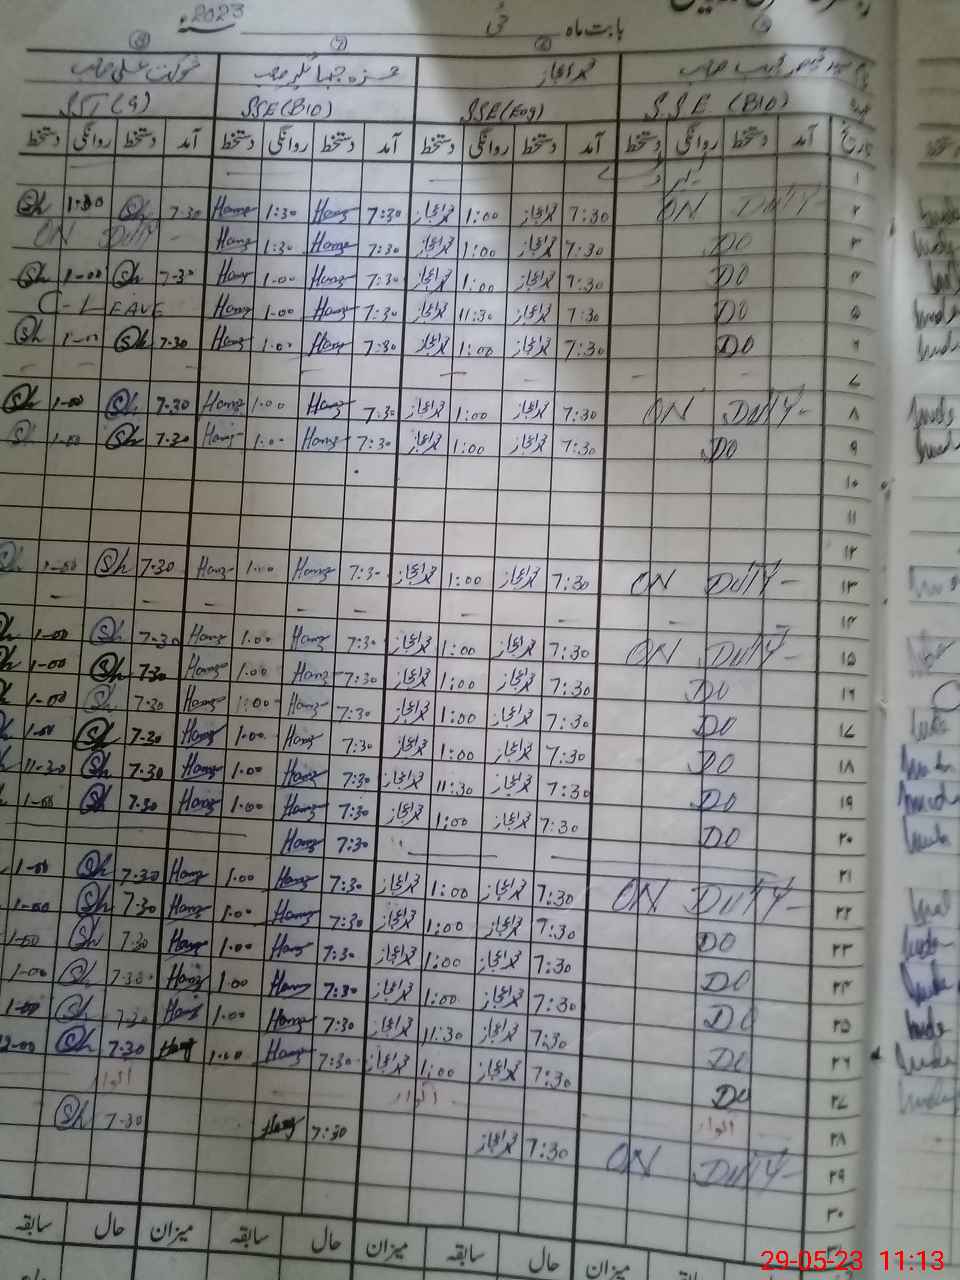 بابت ماہ مئی 2023ء
شوکت علی صاحب حمزہ جہانگیر صاحب محمد اعجاز
SST (G) SSE (BIO) SSE (Eng) SSE (BIO)
تاریخ آمد دستخط روانگی دستخط آمد دستخط روانگی دستخط آمد دستخط روانگی دستخط آمد دستخط روانگی دستخط
۱
۲ ON DUTY 7:30 اعجاز 1:00 اعجاز 7:30 Hamz 1:30 Hamz 7.30 Sh 1:30 Sh
۳ DO 7:30 اعجاز 1:00 اعجاز 7:30 Hamz 1:30 Hamz ON DUTY
۴ DO 7:30 اعجاز 1:00 اعجاز 7:30 Hamz 1.00 Hamz 7.30 Sh 1-00 Sh
۵ DO 7:30 اعجاز 11:30 اعجاز 7:30 Hamz 1-00 Hamz C-LEAVE
۶ DO 7:30 اعجاز 1:00 اعجاز 7:30 Hamz 1.00 Hamz 7.30 Sh 1-00 Sh
۷ - - - -
۸ ON DUTY- 7:30 اعجاز 1:00 اعجاز 7:30 Hamz 1.00 Hamz 7.30 Sh 1-00 Sh
۹ DO 7:30 اعجاز 1:00 اعجاز 7:30 Hamz 1.00 Hamz 7.30 Sh 1-00 Sh
۱۰
۱۱
۱۲
۱۳ ON DUTY- 7:30 اعجاز 1:00 اعجاز 7:30 Hamz 1.00 Hamz 7.30 Sh 1-00 Sh
۱۴ - - - -
۱۵ ON DUTY- 7:30 اعجاز 1:00 اعجاز 7:30 Hamz 1.00 Hamz 7.30 Sh 1-00 Sh
۱۶ DO 7:30 اعجاز 1:00 اعجاز 7:30 Hamz 1.00 Hamz 7.30 Sh 1-00 Sh
۱۷ DO 7:30 اعجاز 1:00 اعجاز 7:30 Hamz 1:00 Hamz 7.30 Sh 1-00 Sh
۱۸ DO 7:30 اعجاز 1:00 اعجاز 7:30 Hamz 1.00 Hamz 7.30 Sh 1-00
۱۹ DO 7:30 اعجاز 11:30 اعجاز 7:30 Hamz 1.00 Hamz 7.30 Sh 11-30
۲۰ DO 7:30 اعجاز 1:00 اعجاز 7:30 Hamz 1.00 Hamz 7.30 Sh 1-00
۲۱ Hamz 7:30
۲۲ ON DUTY- 7:30 اعجاز 1:00 اعجاز 7:30 Hamz 1.00 Hamz 7.30 Sh 1-00
۲۳ DO 7:30 اعجاز 1:00 اعجاز 7:30 Hamz 1.00 Hamz 7:30 Sh 1-00
۲۴ DO 7:30 اعجاز 1:00 اعجاز 7:30 Hamz 1.00 Hamz 7:30 Sh 1-00
۲۵ DO 7:30 اعجاز 1:00 اعجاز 7:30 Hamz 1.00 Hamz 7:30 Sh 1-00
۲۶ DO 7:30 اعجاز 11:30 اعجاز 7:30 Hamz 1.00 Hamz 7:30 Sh 1-00
۲۷ DO 7:30 اعجاز 1:00 اعجاز 7:30 Hamz 1:00 Hamz 7:30 Sh 12-00
۲۸ اتوار اتوار اتوار
۲۹ ON DUTY- 7:30 اعجاز 7:30 Hamz 7-30 Sh
۳۰
۳۱
میزان حال سابقہ میزان حال سابقہ میزان حال سابقہ
29-05-23 11:13